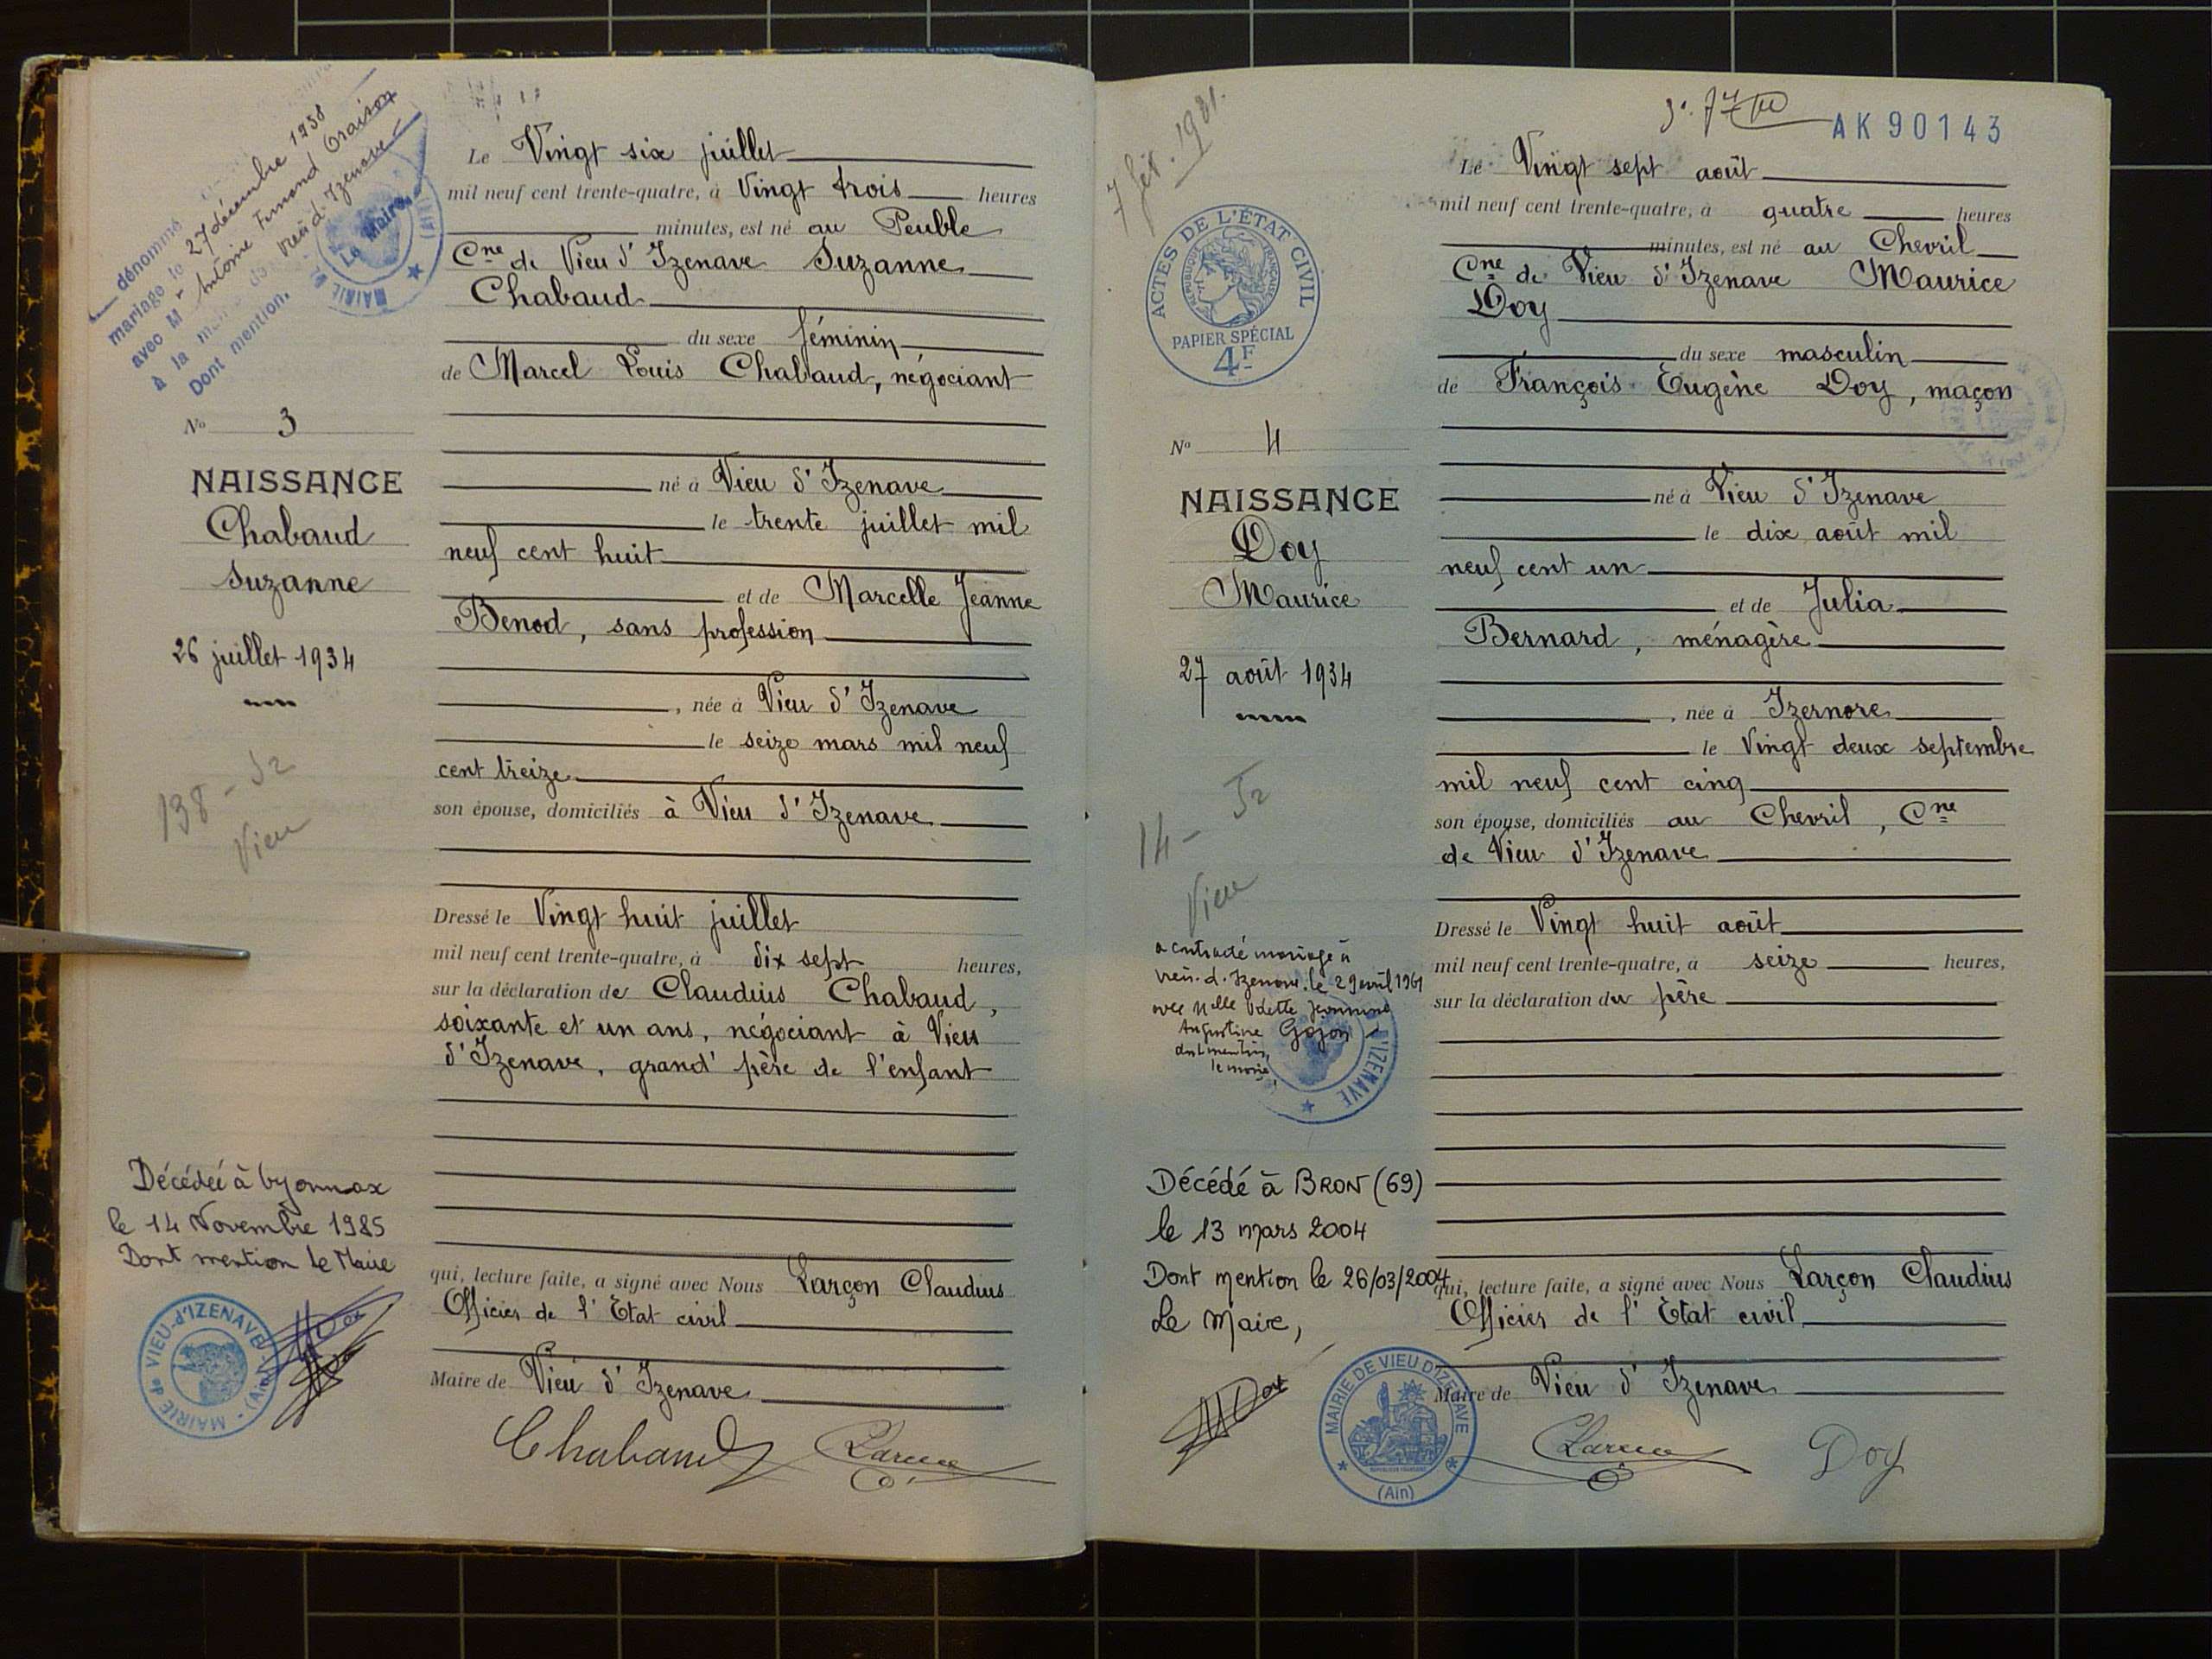 dénommé
mariage le 27 décembre 1958
avec Mr Antoine Fernand Oraison
à la mairie de Vieu d'Izenave
Dont mention.
Le Maire,
MAIRIE
Nº 3
NAISSANCE
Chabaud
Suzanne
26 juillet 1934
138 - J2
Vieu
Décédée à Oyonnax
le 14 Novembre 1985
Dont mention le Maire
MAIRIE De VIEU-d'IZENAVE (Ain)
Le Vingt six juillet
mil neuf cent trente-quatre, à Vingt trois heures
minutes, est né au Peuble
Cne de Vieu d'Izenave Suzanne
Chabaud
du sexe féminin
de Marcel Louis Chabaud, négociant
né à Vieu d'Izenave
le trente juillet mil
neuf cent huit
et de Marcelle Jeanne
Benod, sans profession
, née à Vieu d'Izenave
le seize mars mil neuf
cent treize
son épouse, domiciliés à Vieu d'Izenave
Dressé le Vingt huit juillet
mil neuf cent trente-quatre, à dix sept heures,
sur la déclaration de Claudius Chabaud,
soixante et un ans, négociant à Vieu
d'Izenave, grand' père de l'enfant
qui, lecture faite, a signé avec Nous Larçon Claudius
Officier de l'Etat civil
Maire de Vieu d'Izenave
Chabaud
7 fév. 1981.
ACTES DE L'ÉTAT CIVIL
RÉPUBLIQUE FRANÇAISE
PAPIER SPÉCIAL
4F
Nº 4
NAISSANCE
Doy
Maurice
27 août 1934
14 - J2
Vieu
a contracté mariage à
Vieu-d'Izenave le 29 avril 1961
avec Melle Odette Jeannine
Augustine Gojon
dont mention,
le maire,
D'IZENAVE
Décédé à BRON (69)
le 13 mars 2004
Dont mention le 26/03/2004
Le Maire,
MAIRIE DE VIEU D'IZENAVE
RÉPUBLIQUE FRANÇAISE
(Ain)
AK 90143
Le Vingt sept août
mil neuf cent trente-quatre, à quatre heures
minutes, est né au Chevril
Cne de Vieu d'Izenave Maurice
Doy
du sexe masculin
de François Eugène Doy, maçon
né à Vieu d'Izenave
le dix août mil
neuf cent un
et de Julia
Bernard, ménagère
, née à Izernore
le Vingt deux septembre
mil neuf cent cinq
son épouse, domiciliés au Chevril, Cne
de Vieu d'Izenave
Dressé le Vingt huit août
mil neuf cent trente-quatre, à seize heures,
sur la déclaration du père
qui, lecture faite, a signé avec Nous Larçon Claudius
Officier de l'Etat civil
Maire de Vieu d'Izenave
Doy